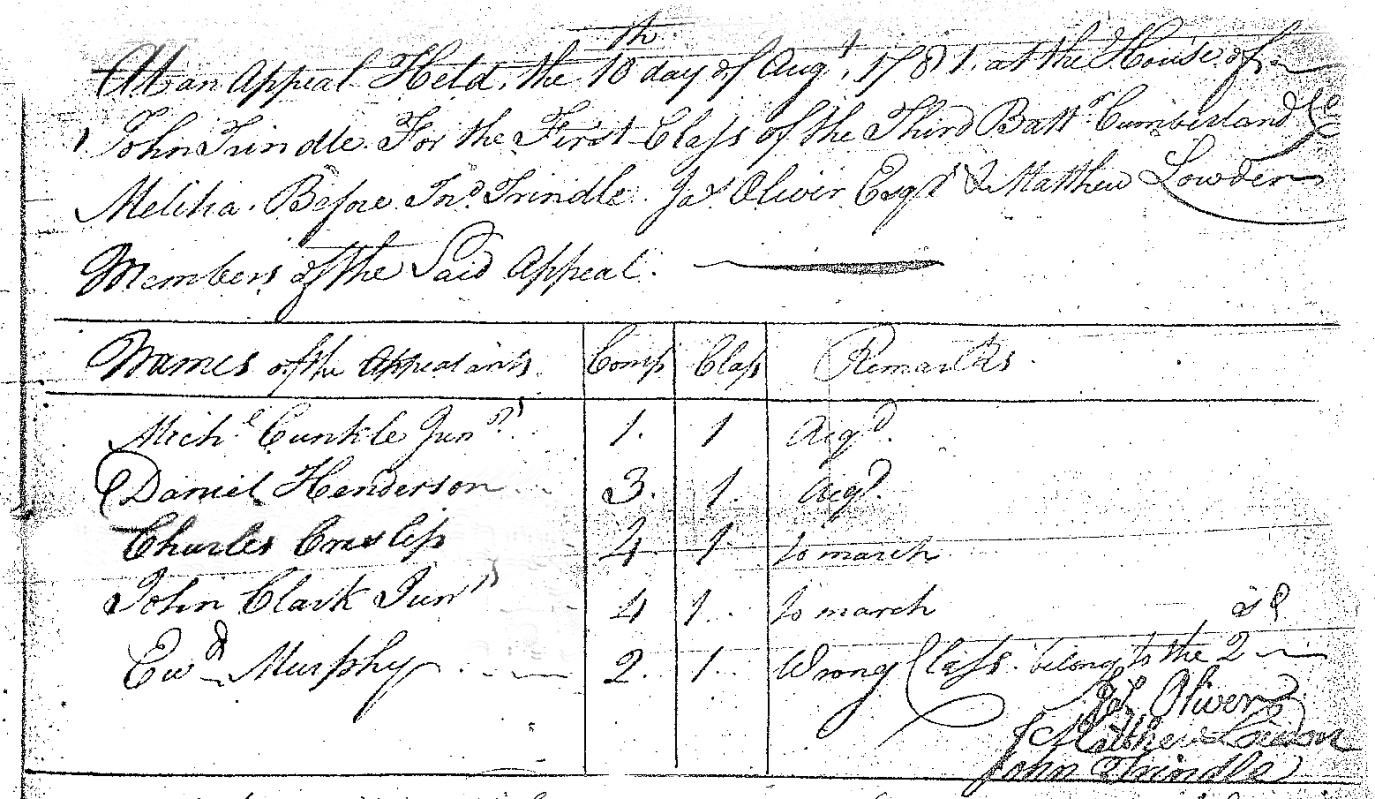 At an Appeal Held, the 10th day of Augt, 1781. at the House of
John Trindle. For the First Class of the Third Battn Cumberland Co
Melitia. Before Jno Trindle. Jas Oliver Esqrs & Matthew Lowden
Members of the Said Appeal.
Names of the Appealants Comp Class Remarks
Michl Cunkle Junr 1. 1
Daniel Henderson 3. 1.
Charles 4 1 to march
John Clark Junr 4 1. to march
Ewd Murphy 2. 1. Wrong Class. belong to the 2
Jas Oliver
Matthew Loudon
John Trindle